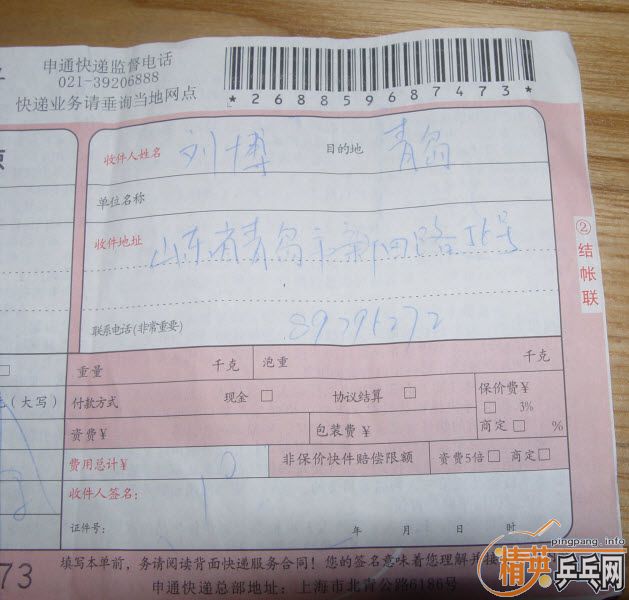 申通快递监督电话
021-39206888
快递业务请垂询当地网点
*268859687473*
收件人姓名 刘博 目的地 青岛
单位名称
收件地址 山东省青岛市新田路 号
联系电话(非常重要)
②结帐联
重量 千克 泡重 千克
(大写) 付款方式 现金 协议结算 保价费¥
3%
资费¥ 包装费¥ 商定 %
费用总计¥ 10 非保价快件赔偿限额 资费5倍 商定
收件人签名:
证件号: 年 月 日 时
填写本单前,务请阅读背面快递服务合同!您的签名意味着您理解并接
73 申通快递总部地址:上海市北青公路6186号
pingpang.info
精英乒乓网